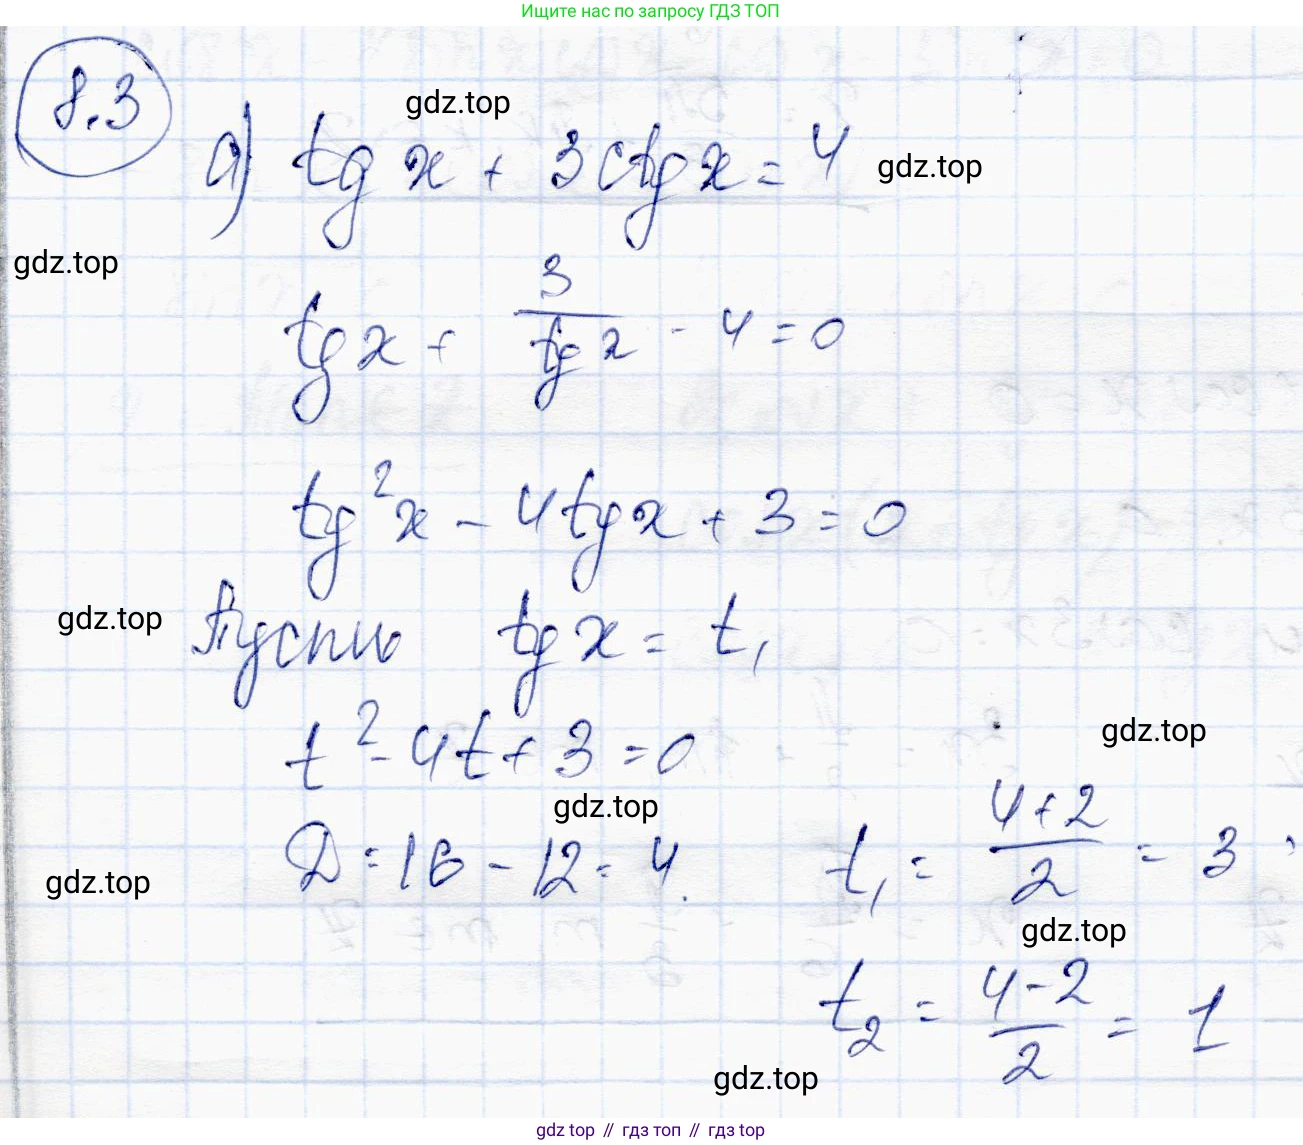 Ищите нас по запросу ГДЗ ТОП
8.3
gdz.top
а) tg x + 3 ctg x = 4
gdz.top
gdz.top
tg x + 3/tg x - 4 = 0
tg²x - 4tg x + 3 = 0
gdz.top
Пусть tg x = t,
t² - 4t + 3 = 0
gdz.top
gdz.top
D = 16 - 12 = 4.
t₁ = (4+2)/2 = 3;
gdz.top
gdz.top
t₂ = (4-2)/2 = 1
gdz.top
gdz top // гдз топ // gdz top